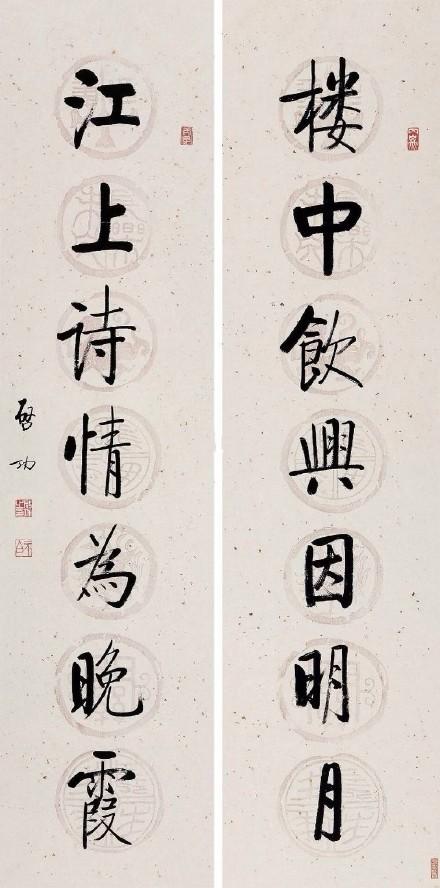 楼中飲興因明月
江上诗情為晚霞
啓功